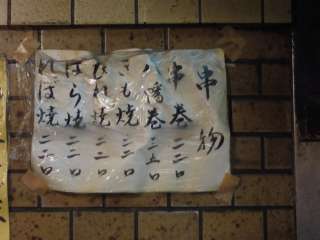 串物
串巻二二〇
八幡巻二五〇
きも焼二二〇
ひれ焼二二〇
ばら焼二二〇
れば焼二二〇